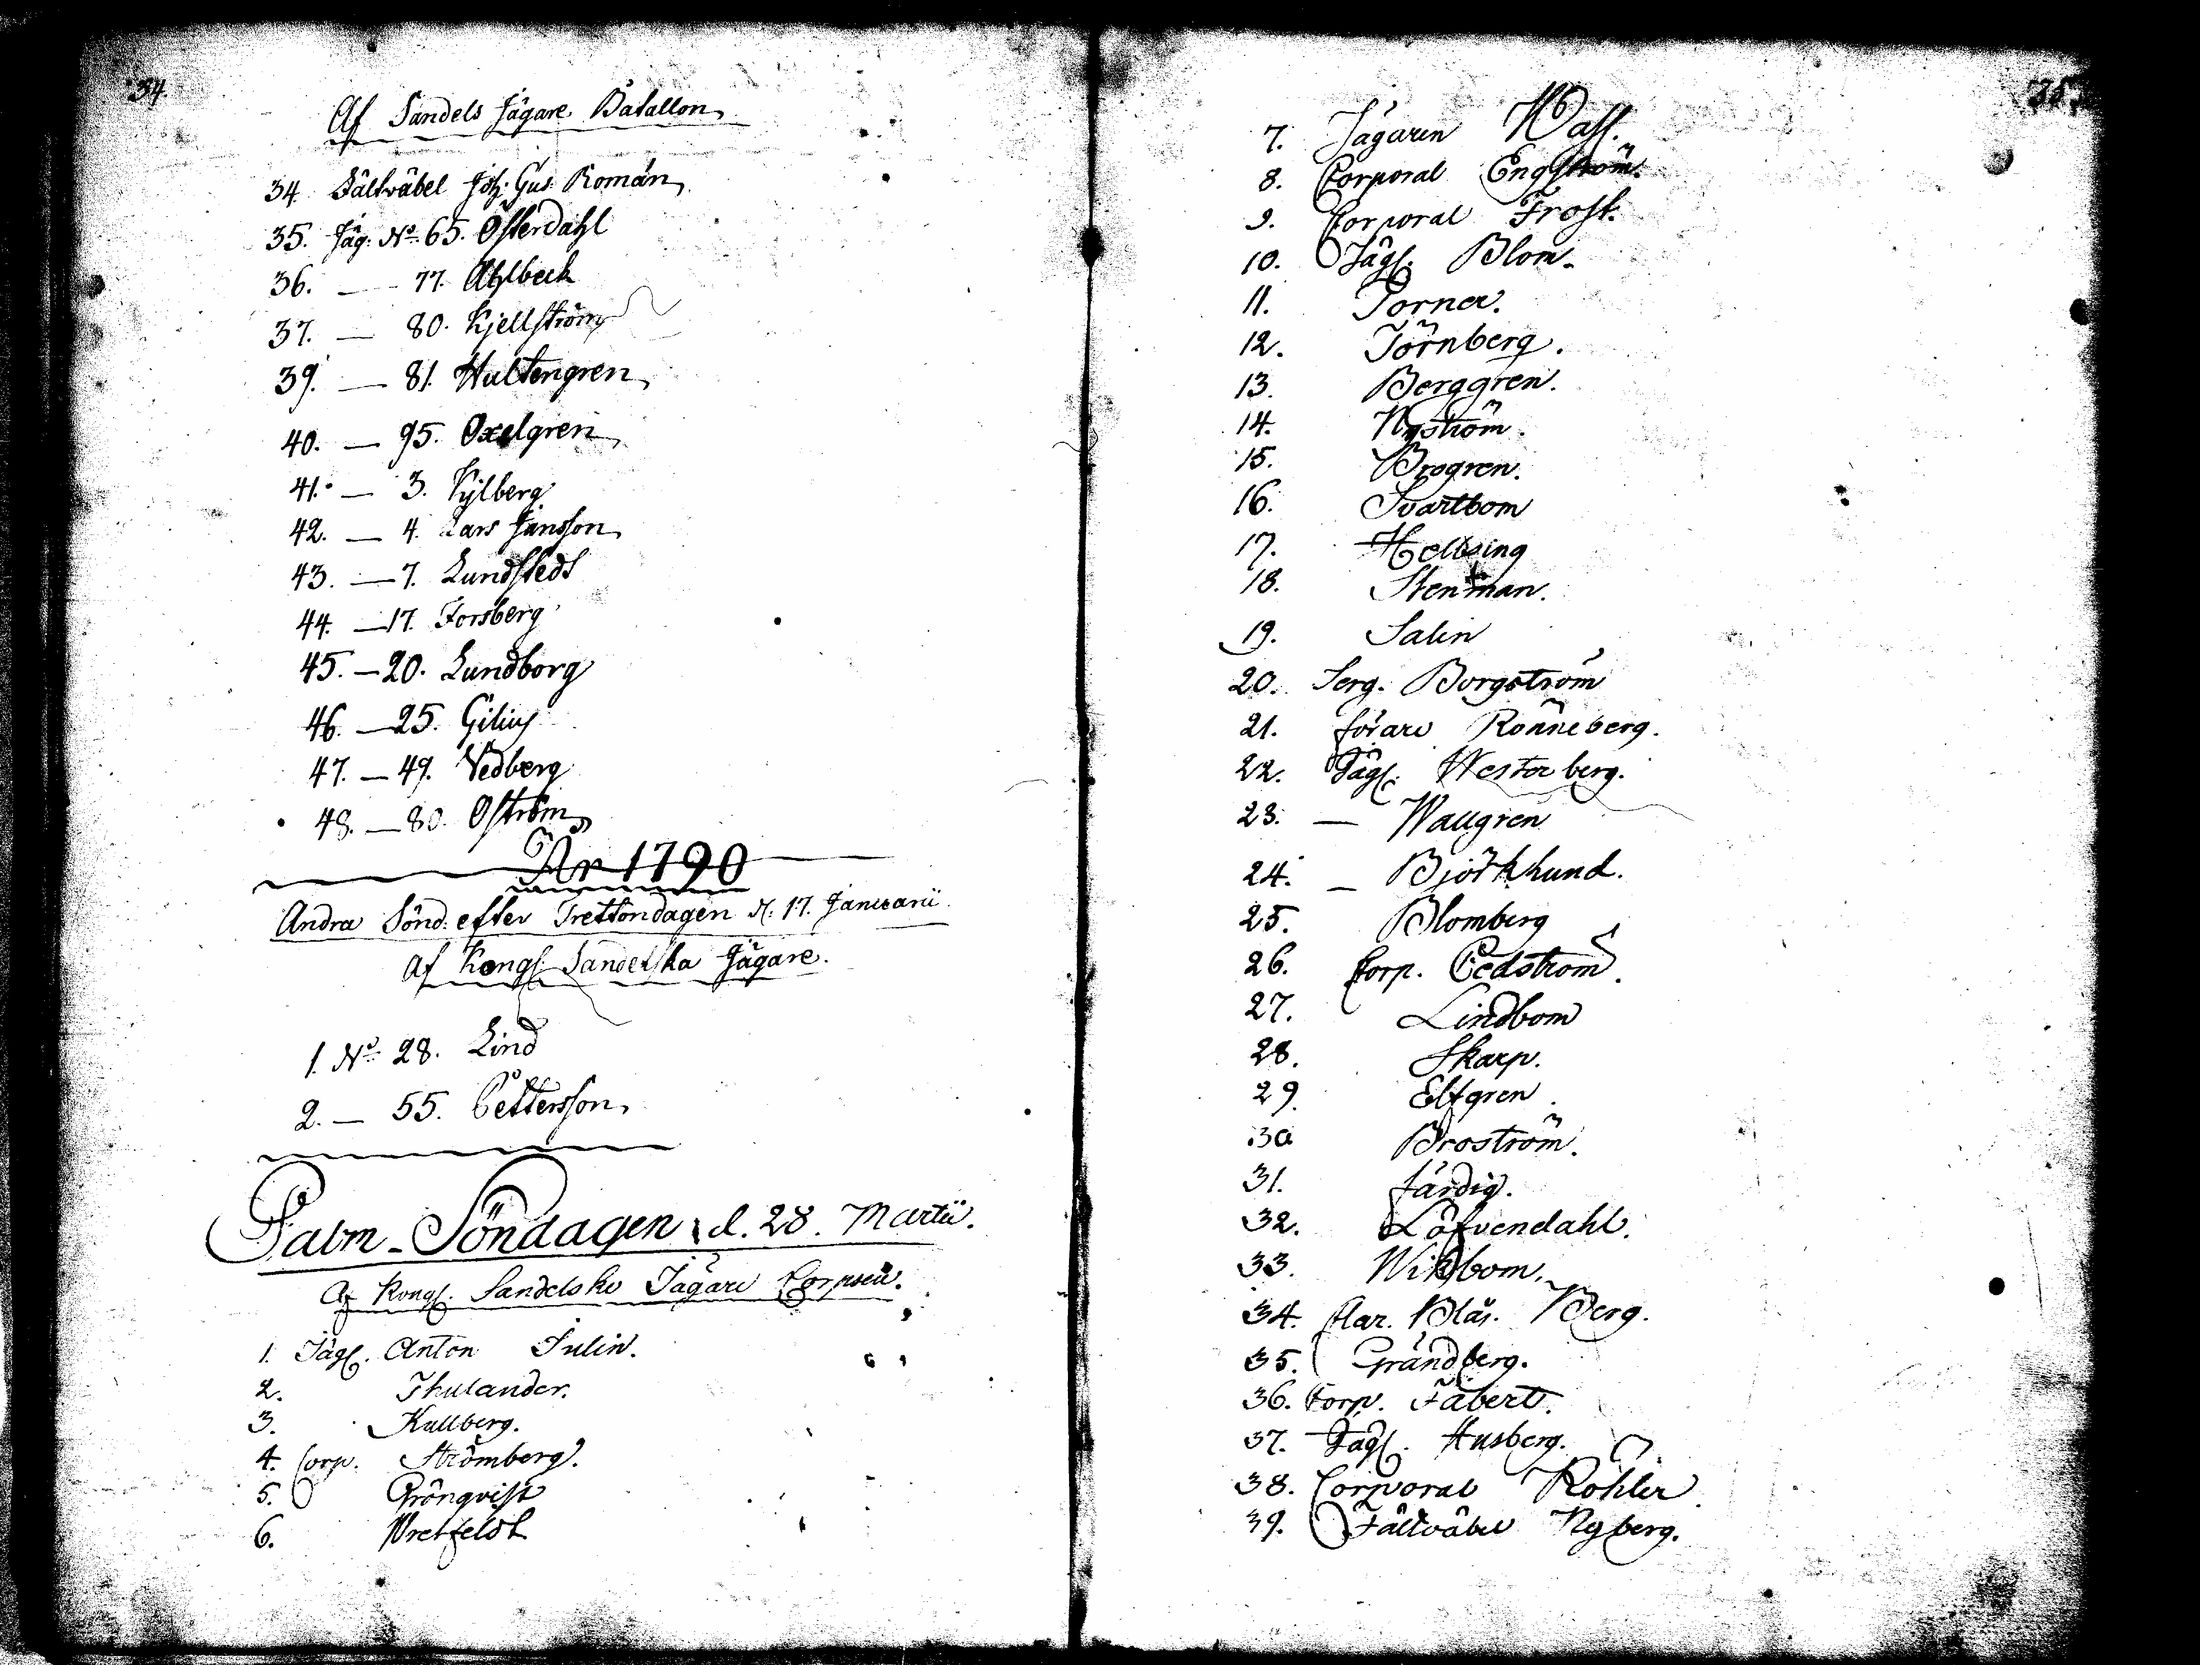 34.
Af Sandels Jägare Batallon
34 Fältväbel Joh: Gus: Román
35. Jäg: No. 65. Österdahl
36. — 77. Ahlbeck
37. — 80. Kjellström
39. — 81. Hultengren
40. — 95. Oxelgren
41. — 3. Kylberg
42. — 4. Lars Jansson
43. — 7. Lundstedt
44. — 17. Forsberg
45. — 20. Lundborg
46. — 25. Gilius
47. — 49. Vedberg
48. — 80. Oström
År 1790
Andra Sönd: efter Trettondagen d: 17. Januarii
Af Kongl: Sandelska Jägare.
1. No. 28. Lind
2. — 55. Pettersson
Palm-Söndagen d. 28. Martii.
Af Kongl. Sandelska Jägare Corpsen.
1. Jägs. Anton Julin.
2. Thulander.
3. Kullberg.
4. Corp. Strömberg.
5. Grönqvist
6. Wretfeldt
35.
7. Jägaren Wass.
8. Corporal Engström.
9. Corporal Frost.
10. Jägs. Blom.
11. Torner.
12. Törnberg.
13. Berggren.
14. Nyström.
15. Brogren.
16. Svartbom
17. Helbsing
18. Stenman.
19. Salin
20. Serg. Borgström
21. förare Rönneberg.
22. Jägs. Westerberg.
23. — Wallgren
24. — Björkhund.
25. Blomberg
26. Corp. Cedström.
27. Lindbom
28. Skarp.
29. Elfgren.
30 Broström.
31. färdig.
32. Löfvendahl.
33. Wikbom.
34. Clar. Blås. Berg.
35. Grandberg.
36. Corp. Fabert.
37. Jägs. Husberg.
38. Corporal Köhler.
39. Fältväbel Nyberg.